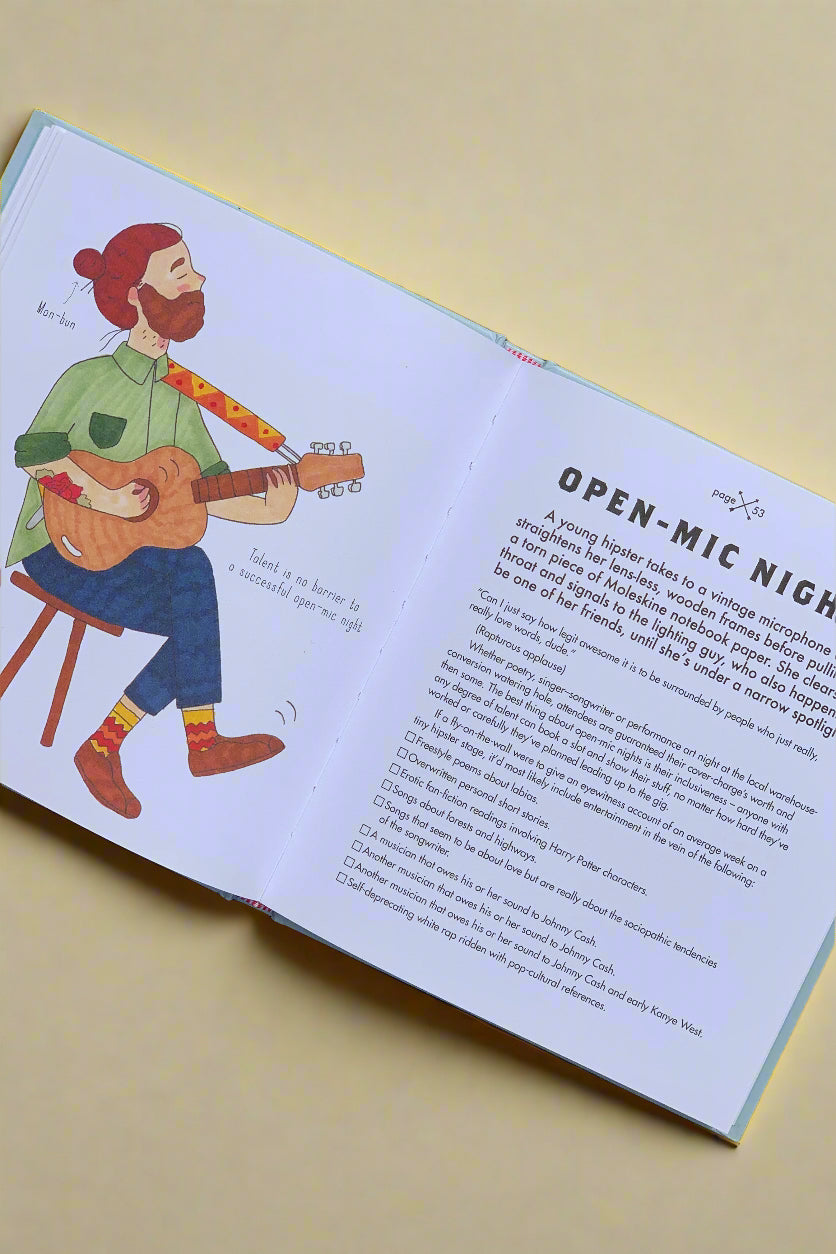 Man-bun
Talent is no barrier to
a successful open-mic night
page 53
OPEN-MIC NIGH
A young hipster takes to a vintage microphone
straightens her lens-less, wooden frames before pulli
a torn piece of Moleskine notebook paper. She clea
throat and signals to the lighting guy, who also happen
be one of her friends, until she's under a narrow spotlig
"Can I just say how legit awesome it is to be surrounded by people who just really,
really love words, dude."
(Rapturous applause)
Whether poetry, singer-songwriter or performance art night at the local warehouse-
conversion watering hole, attendees are guaranteed their cover-charge's worth and
then some. The best thing about open-mic nights is their inclusiveness – anyone with
any degree of talent can book a slot and show their stuff, no matter how hard they've
worked or carefully they've planned leading up to the gig.
If a fly-on-the-wall were to give an eyewitness account of an average week on a
tiny hipster stage, it'd most likely include entertainment in the vein of the following:
☐ Freestyle poems about labias.
☐ Overwritten personal short stories.
☐ Erotic fan-fiction readings involving Harry Potter characters.
☐ Songs about forests and highways.
☐ Songs that seem to be about love but are really about the sociopathic tendencies
of the songwriter.
☐ A musician that owes his or her sound to Johnny Cash.
☐ Another musician that owes his or her sound to Johnny Cash.
☐ Another musician that owes his or her sound to Johnny Cash and early Kanye West.
☐ Self-deprecating white rap ridden with pop-cultural references.